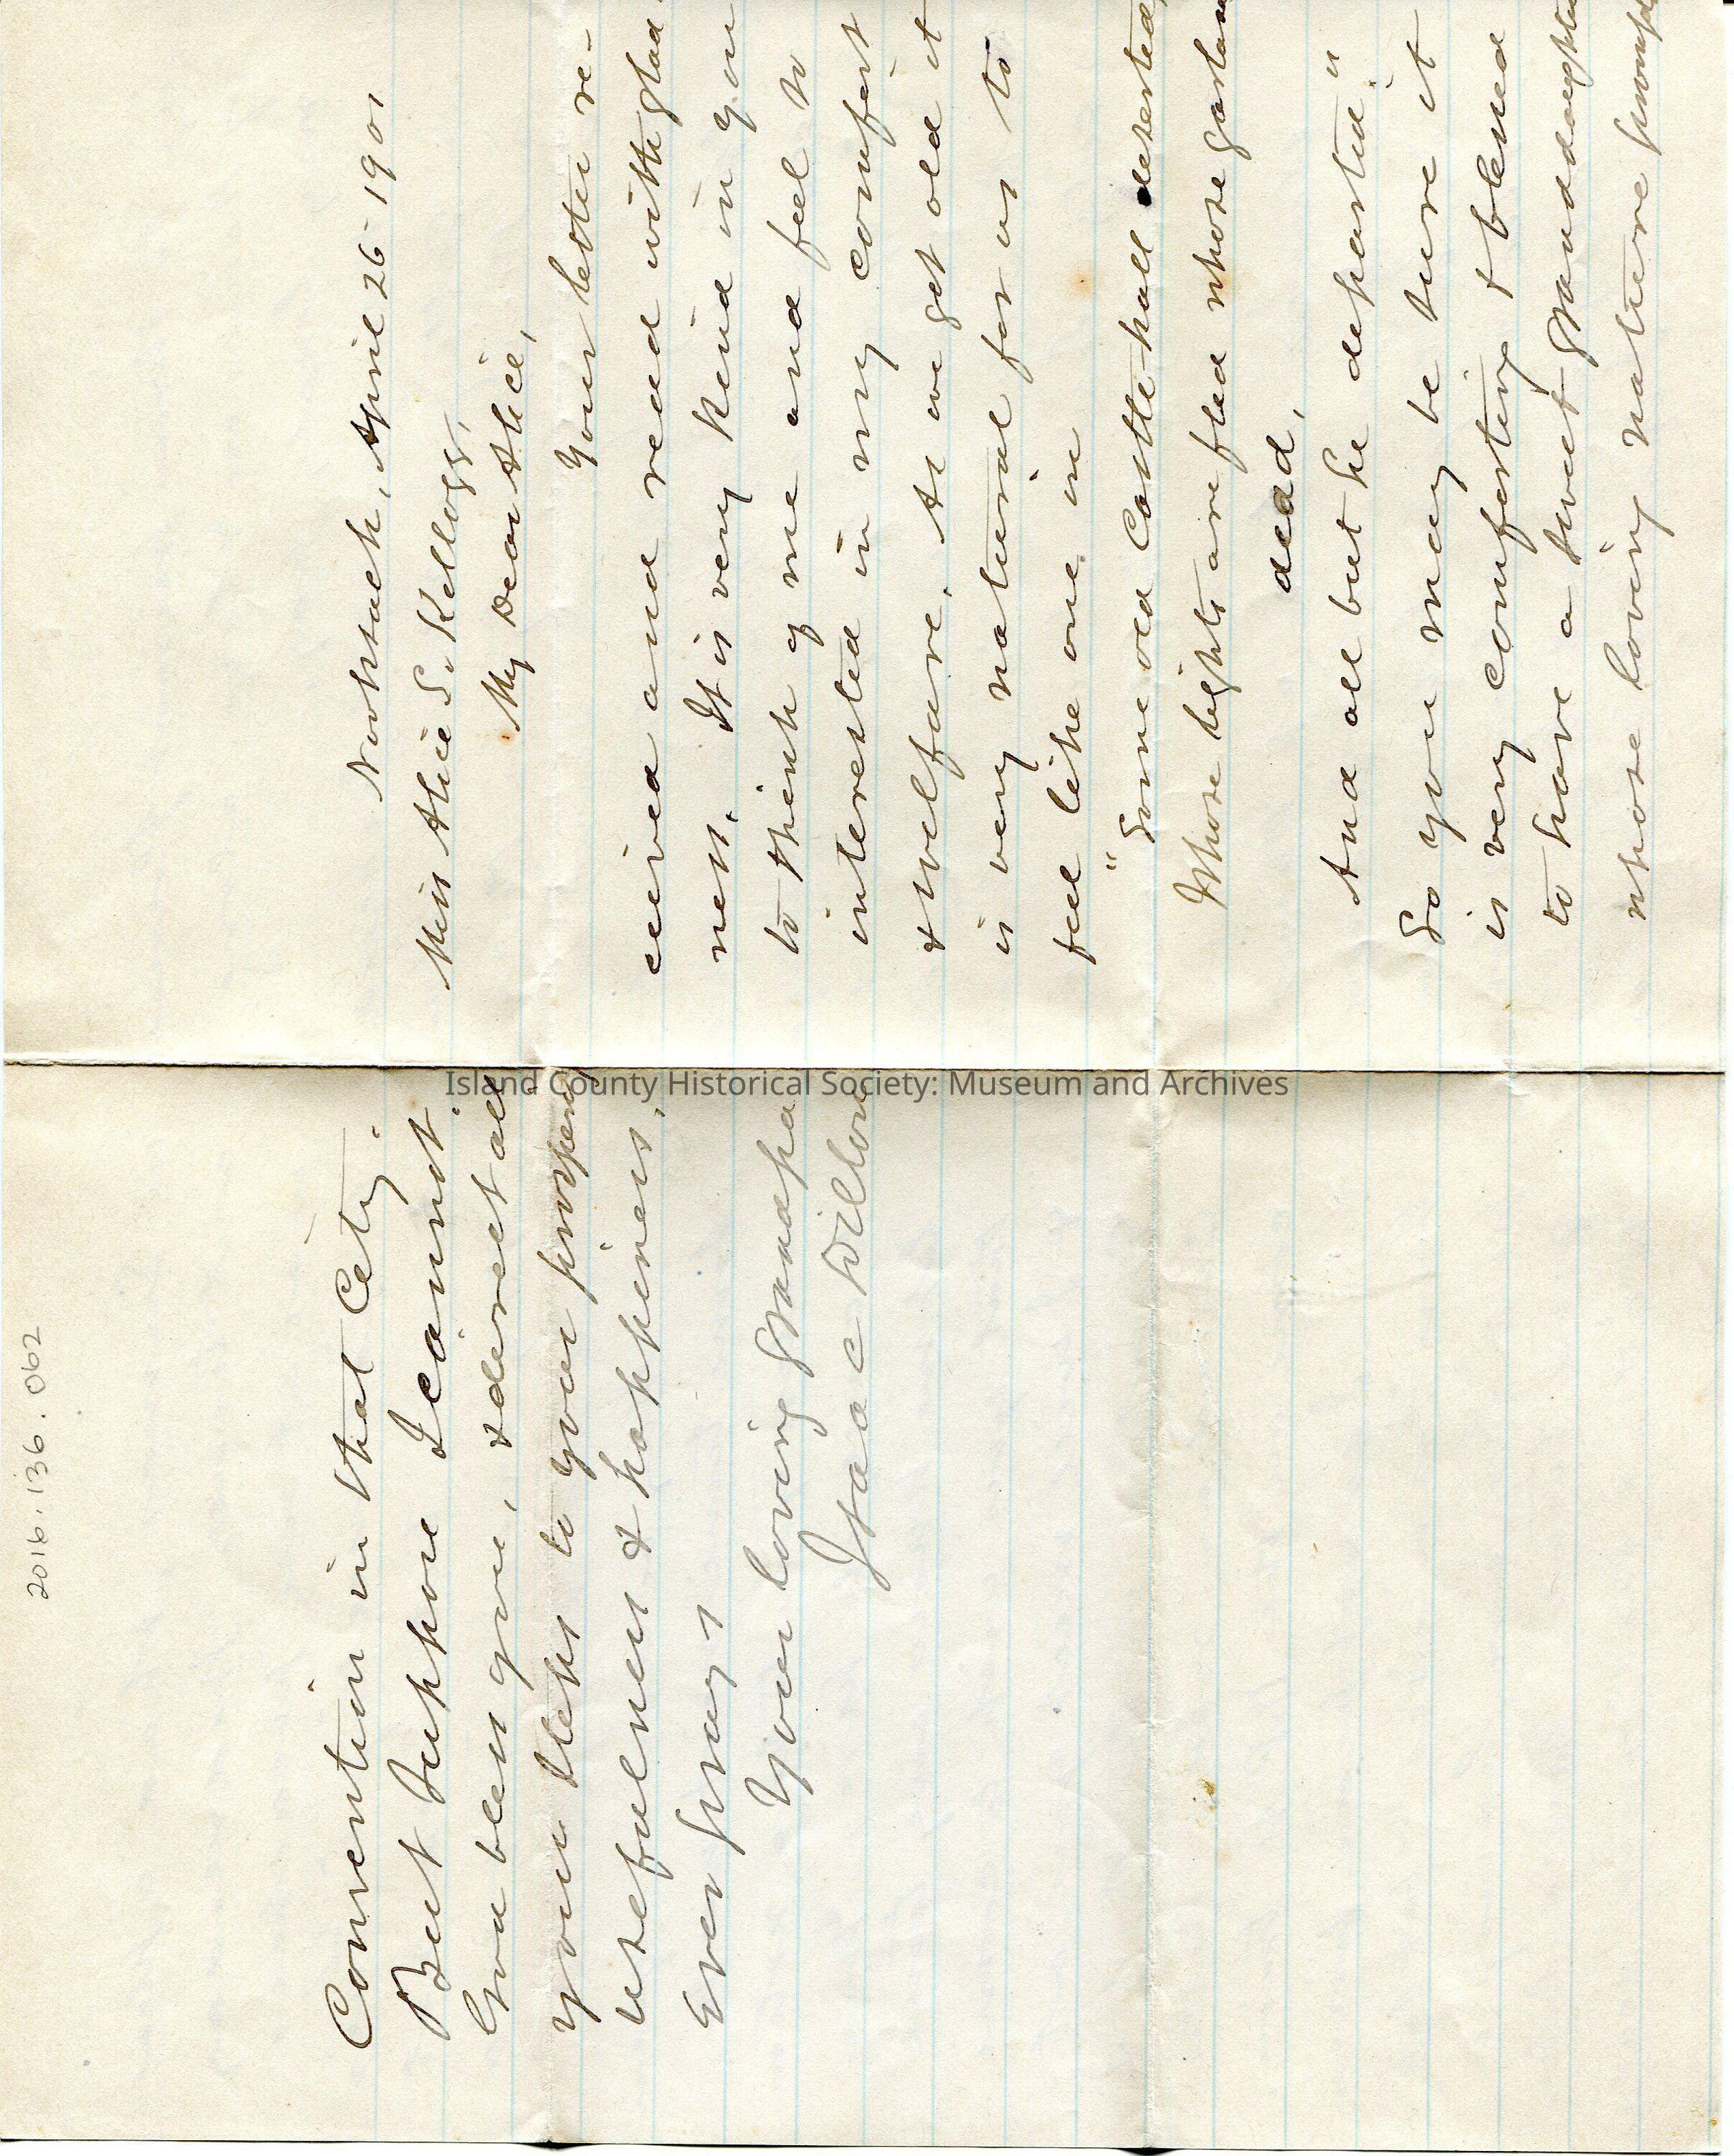 Nooksack, April 26 1901
Miss Alice S. Kellogg,
My Dear Alice,
Your letter re-
ceived and read with glad
ness. It is very kind in you
to think of me and feel so
interested in my comfort
& welfare. As we get old it
is very natural for us to
feel like one in
"Some old Castle-hall deserted,
Whose lights are fled whose garlan
dead,
And all but he departed."
So you may be sure it
is very comforting & blessed
to have a sweet granddaughter
whose loving nature prompts
Convention in that City.
But suppose I cannot.
God bless you, & direct all
your steps to your prosperi
usefulness & happiness,
Ever prays
Your loving grandpa
Isaac Dillon
2016.136.062
Island County Historical Society: Museum and Archives